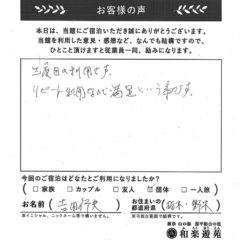 お客様の声
本日は、当館にご宿泊いただき誠にありがとうございます。
当館を利用した意見・感想など、なんでも結構ですので、
ひとこと頂けますと従業員一同、励みになります。
三度目の利用です。
リピート利用なので満足という事です。
今回のご宿泊はどなたとご利用になりましたか?
□家族 □カップル □友人 ☑団体 □一人旅
お名前 吉田行史 お住まいの都道府県 栃木・野木
※イニシャル、ニックネーム等で構いません。
※可能な範囲で結構です。
和楽遊苑